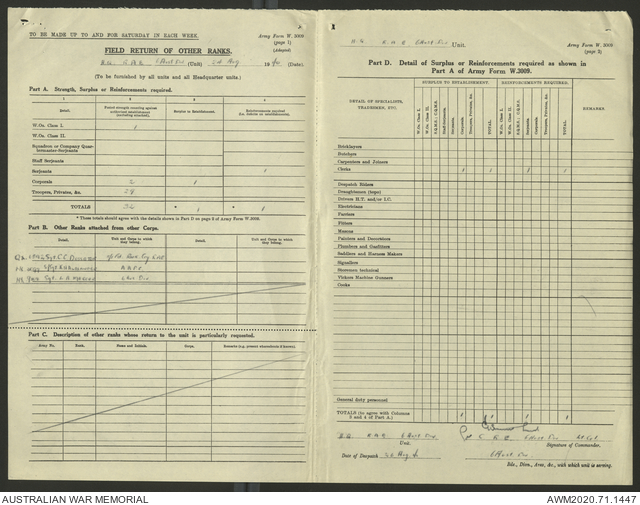 TO BE MADE UP TO AND FOR SATURDAY IN EACH WEEK.
Army Form W. 3009
(page 1)
(Adapted)
FIELD RETURN OF OTHER RANKS.
(Unit) 24 Aug 1940 (Date).
(To be furnished by all units and all Headquarter units.)
Part A. Strength, Surplus or Reinforcements required.
1 2 3 4
Detail. Surplus to Establishment.
W.Os. Class I. 1
W.Os. Class II.
Squadron or Company Quarter-
master-Serjeants
Staff Serjeants
Serjeants 1
Corporals 2 1
Troopers, Privates, &c. 29
TOTALS 32 * 1 * 1
* These totals should agree with the details shown in Part D on page 2 of Army Form W. 3009.
Part B. Other Ranks attached from other Corps.
Detail. Unit and Corps to which they belong. Detail. Unit and Corps to which they belong.
Part C. Description of other ranks whose return to the unit is particularly requested.
Army No. Rank. Name and Initials. Corps. Remarks (e.g., present whereabouts if known).
H.Q. R.A.E. 6 Aust Div Unit.
Army Form W. 3009
(page 2)
Part D. Detail of Surplus or Reinforcements required as shown in
Part A of Army Form W.3009.
DETAIL OF SPECIALISTS, TRADESMEN, ETC.
SURPLUS TO ESTABLISHMENT. REINFORCEMENTS REQUIRED. REMARKS.
W.Os. Class I. W.Os. Class II. S.Q.M.S., C.Q.M.S. Staff-Serjeants. Serjeants. Corporals. Troopers, Privates, &c. TOTAL W.Os. Class I. W.Os. Class II. S.Q.M.S., C.Q.M.S. Serjeants. Corporals. Troopers, Privates, &c. TOTAL
Bricklayers
Butchers
Carpenters and Joiners
Clerks 1 1 1 1
Despatch Riders
Draughtsmen (topo)
Drivers H.T. and/or I.C.
Electricians
Farriers
Fitters
Masons
Painters and Decorators
Plumbers and Gasfitters
Saddlers and Harness Makers
Signallers
Storemen technical
Vickers Machine Gunners
Cooks
General duty personnel
TOTALS (to agree with Columns
3 and 4 of Part A.) 1 1 1 1
H.Q. R.A.E. 6 Aust Div
Unit.
R.A.E. 6 Aust Div Lt-Col
Signature of Commander.
Date of Despatch 24 Aug 40
6 Aust Div
Bde., Divn., Area, &c., with which unit is serving.
AUSTRALIAN WAR MEMORIAL
AWM2020.71.1447